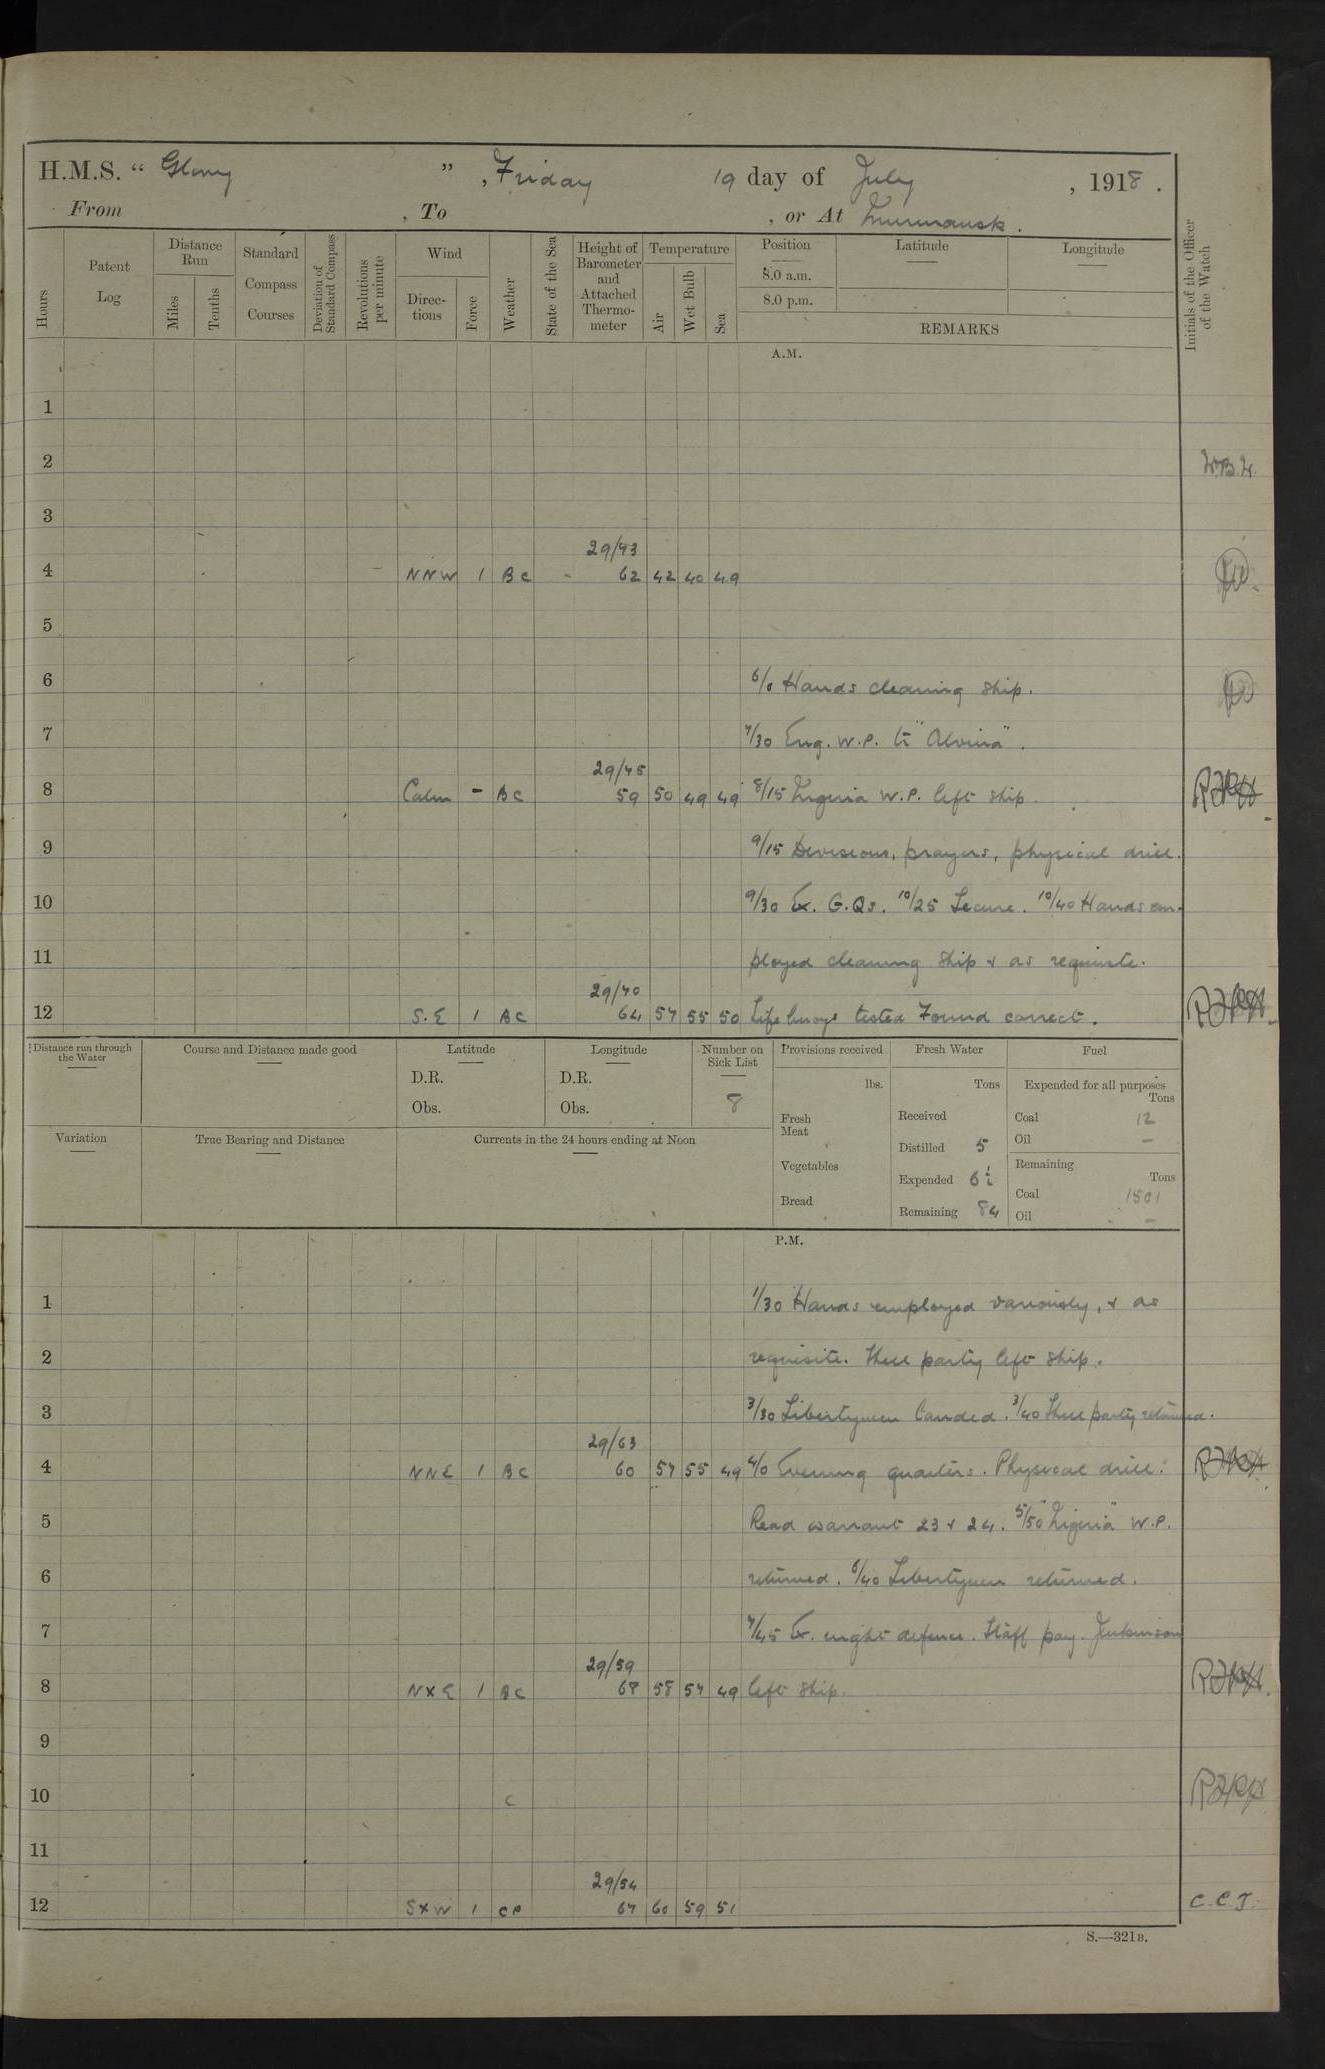 H.M.S. "Glory", Friday 19 day of July, 1918.
From , To , or At Murmansk.
Hours
Patent Log
Distance Run
Miles
Tenths
Standard Compass Courses
Deviation of Standard Compass
Revolutions per minute
Wind
Directions
Force
Weather
State of the Sea
Height of Barometer and Attached Thermometer
Temperature
Air
Wet Bulb
Sea
Position
8.0 a.m.
8.0 p.m.
Latitude
Longitude
REMARKS
Initials of the Officer of the Watch
A.M.
1
2
3
29/43
4 NNW 1 BC - 62 42 40 49
5
6 6/0 Hands cleaning ship.
7 7/30 Eng. W.P. to "Alvina".
29/45
8 Calm - BC 59 50 49 49 8/15 Nigeria W.P. left ship.
9 9/15 Divisions, prayers, physical drill.
10 9/30 Ex. G.Qs. 10/25 Secure. 10/40 Hands em-
11 ployed cleaning ship & as requisite.
29/40
12 S.E 1 BC 64 57 55 50 Life buoys tested Found correct.
Distance run through the Water
Course and Distance made good
Latitude
D.R.
Obs.
Longitude
D.R.
Obs.
Number on Sick List
8
Provisions received
lbs.
Fresh Meat
Vegetables
Bread
Fresh Water
Tons
Received
Distilled 5
Expended 6½
Remaining 84
Fuel
Expended for all purposes
Tons
Coal 12
Oil —
Remaining
Tons
Coal 1501
Oil —
Variation
True Bearing and Distance
Currents in the 24 hours ending at Noon
P.M.
1 1/30 Hands employed variously, & as
2 requisite. party left ship.
3 3/30 Libertymen landed. 3/40 party returned.
29/63
4 NNE 1 BC 60 57 55 49 4/0 Evening quarters. Physical drill.
5 Read warrant 23 & 24. 5/50 "Nigeria" W.P.
6 returned. 6/40 Libertymen returned.
7 7/45 Ex. night defence. Staff pay. Jenkinson
29/59
8 NXE 1 BC 68 58 57 49 left ship.
9
10 C
11
29/54
12 SXW 1 CP 67 60 59 51 C.C.J.
S.—321B.